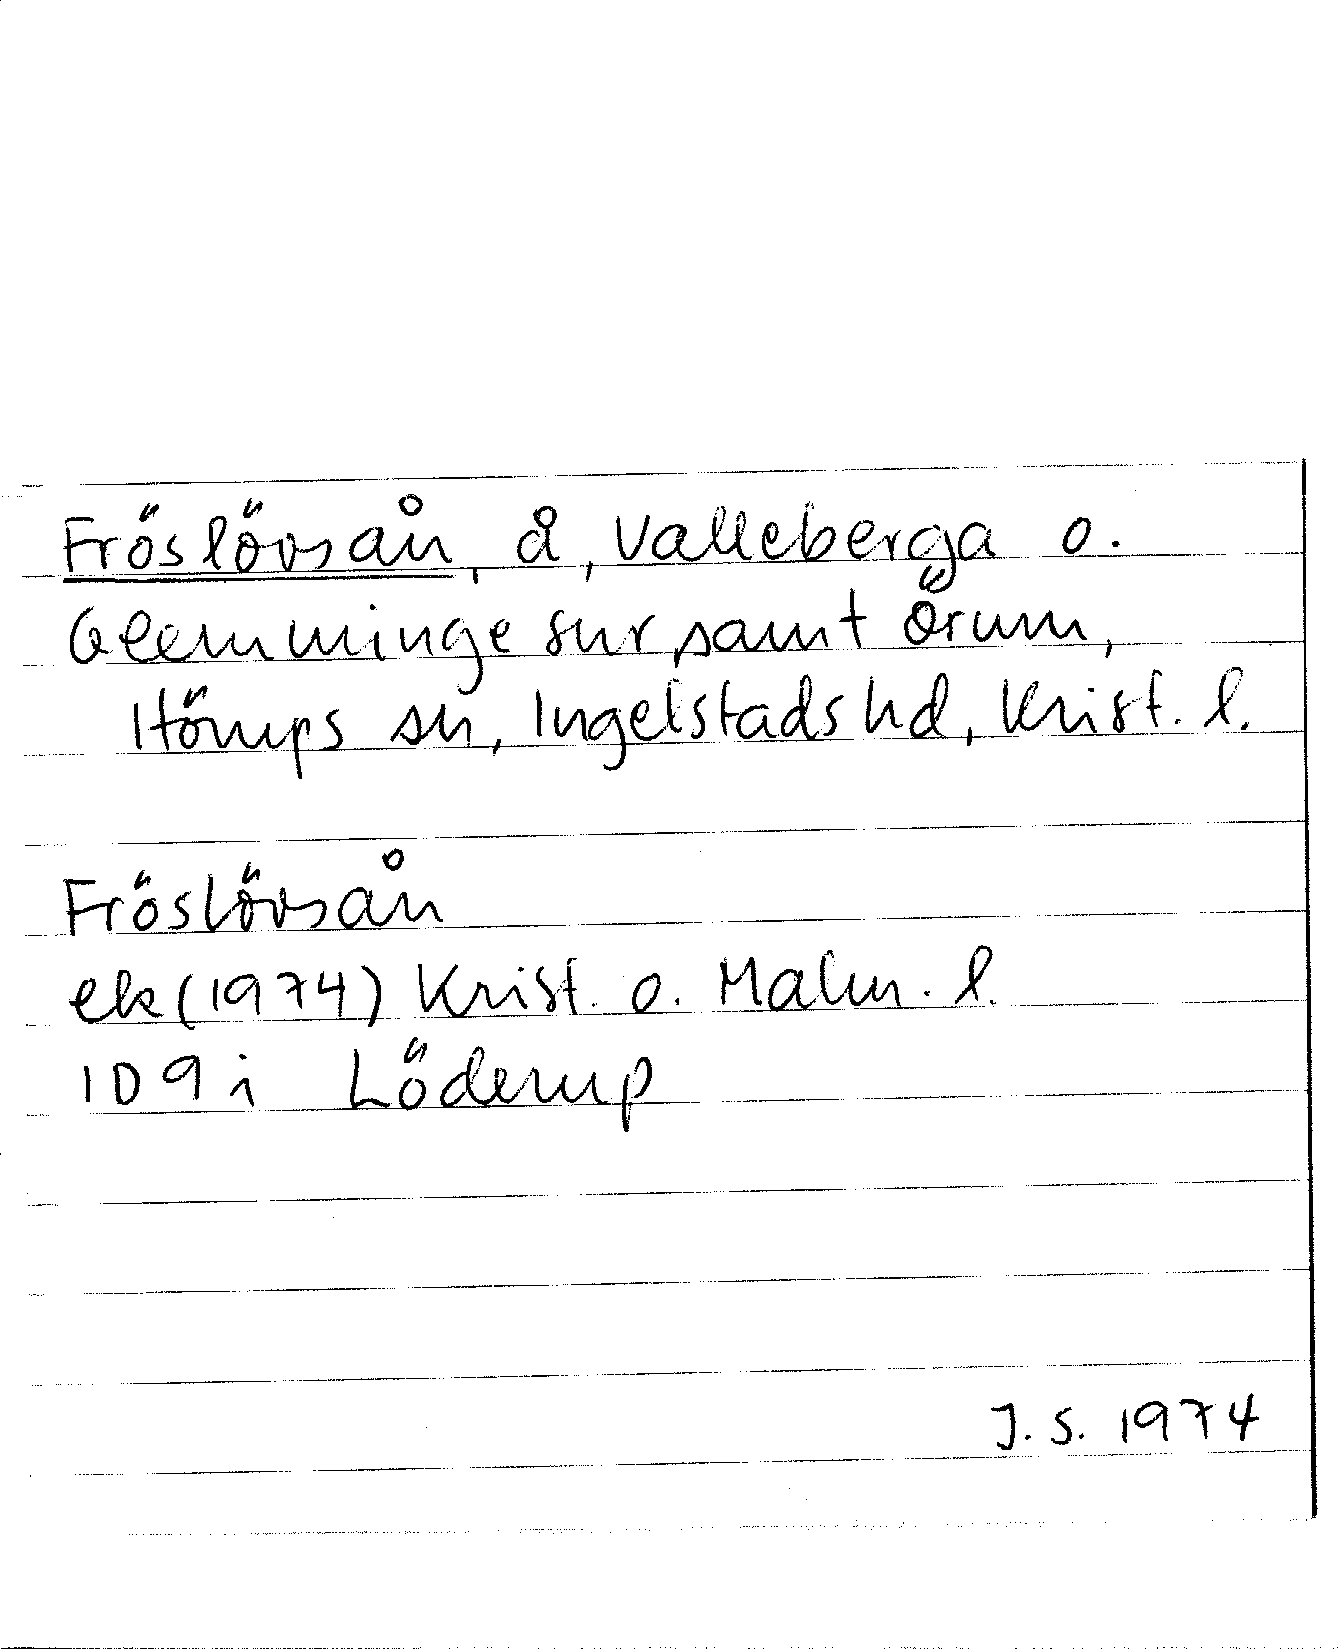 Fröslövsån, å, Valleberga o.
Glemminge snr samt Örum,
Hörups sn, Ingelstads hd, Krist. l.
Fröslövsån
ek (1974) Krist. o. Malm. l.
1D 9i Löderup
J. S. 1974